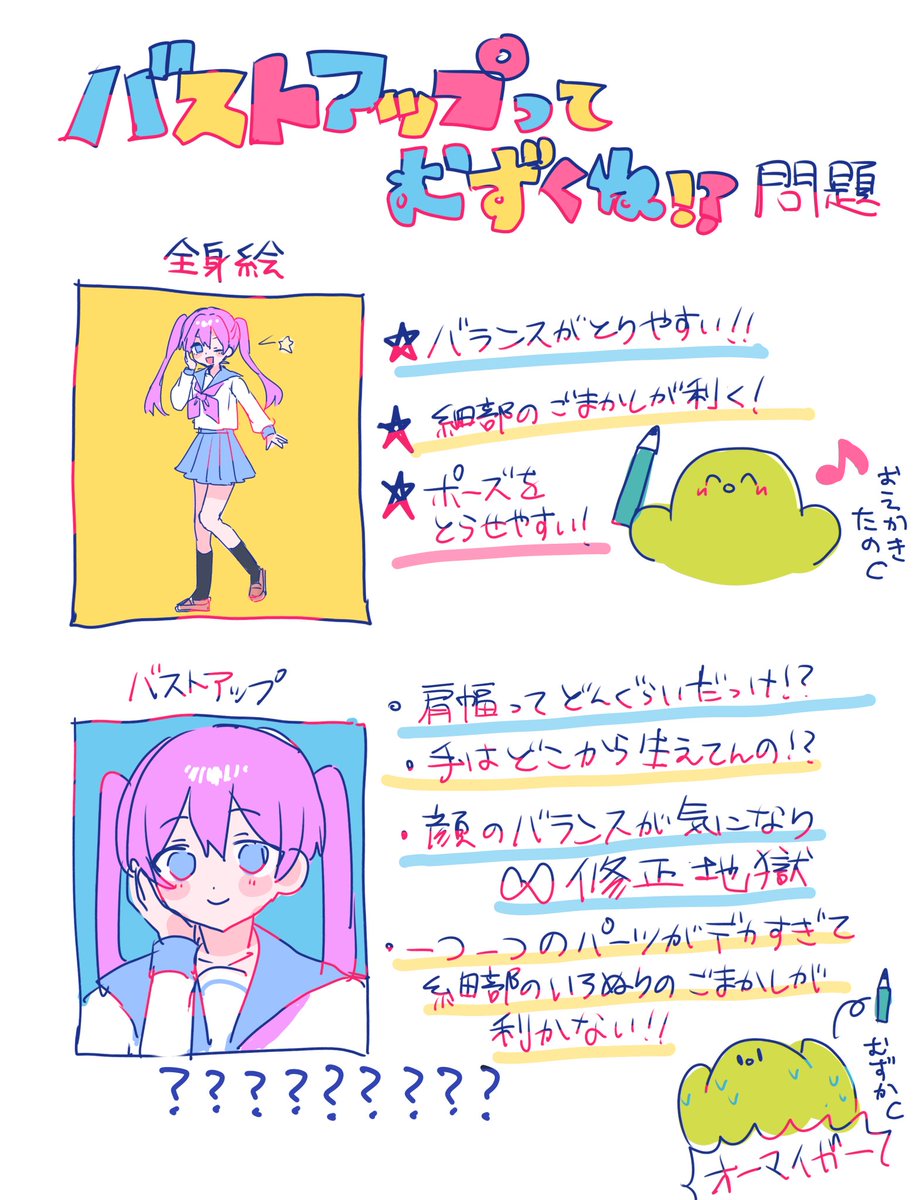 バストアップって
むずくね!? 問題
全身絵
★バランスがとりやすい!!
★細部のごまかしが利く!
★ポーズを
とらせやすい!
おえかき
たのC
バストアップ
・肩幅ってどんぐらいだっけ!?
・手はどこから生えてんの!?
・顔のバランスが気になり
∞修正地獄
・一つ一つのパーツがデカすぎて
細部のいろぬりのごまかしが
利かない!!
?????????
むずかC
オーマイガーて